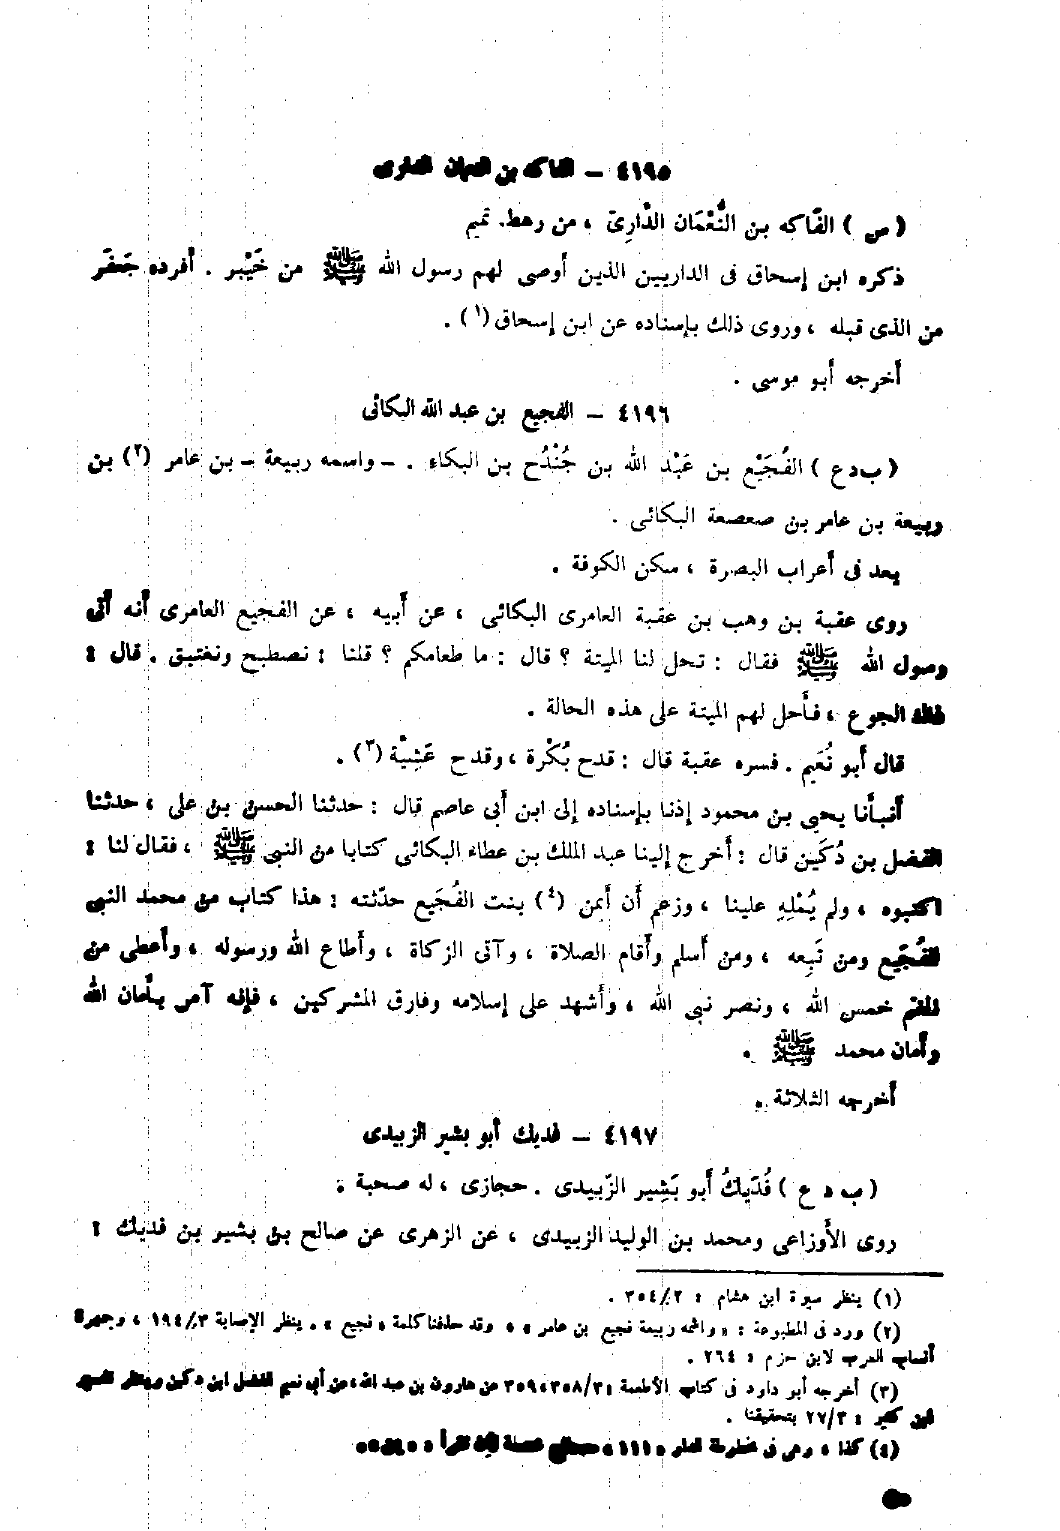 ٤١٩٥ – الفاكه بن النعمان الدارى
( س ) الفَاكه بن النُّعْمَان الدَّارِىّ ، من رهط. تميم
ذكره ابن إسحاق فى الداريين الذين أوصى لهم رسول الله ﷺ من خَيْبر . أفرده جَعفَر
من الذى قبله ، وروى ذلك بإسناده عن ابن إسحاق (١) .
أخرجه أبو موسى .
٤١٩٦ – الفجيع بن عبد الله البكائى
( ب د ع ) الفُجَيْع بن عَبْد الله بن جُنْدُح بن البكاء . – واسمه ربيعة – بن عامر (٢) بن
ربيعة بن عامر بن صعصعة البكائى .
يعد فى أعراب البصرة ، سكن الكوفة .
روى عقبة بن وهب بن عقبة العامرى البكائى ، عن أبيه ، عن الفجيع العامرى أنه أتى
رسول الله ﷺ فقال : تحل لنا الميتة ؟ قال : ما طعامكم ؟ قلنا : نصطبح ونغتبق . قال :
ذلك الجوع ، فأحل لهم الميتة على هذه الحالة .
قال أبو نُعَيم . فسره عقبة قال : قدح بُكْرة ، وقدح عَشِيَّة (٣) .
أنبأنا يحيى بن محمود إذنا بإسناده إلى ابن أبى عاصم قال : حدثنا الحسن بن على ، حدثنا
الفضل بن دُكَين قال : أخرج إلينا عبد الملك بن عطاء البكائى كتابا من النبى ﷺ ، فقال لنا :
اكتبوه ، ولم يُمْلِهِ علينا ، وزعم أن أيمن (٤) بنت الفُجَيع حدّثته : هذا كتاب من محمد النبى
للفُجَيْع ومن تَبِعه ، ومن أسلم وأقام الصلاة ، وآتى الزكاة ، وأطاع الله ورسوله ، وأعطى من
المغنم خمس الله ، ونصر نبى الله ، وأشهد على إسلامه وفارق المشركين ، فإنه آمن بأمان الله
وأمان محمد ﷺ .
أخرجه الثلاثة .
٤١٩٧ – فديك أبو بشير الزبيدى
( ب د ع ) فُدَيكُ أَبو بَشِير الزَّبيدى . حجازى ، له صحبة :
روى الأوزاعى ومحمد بن الوليد الزبيدى ، عن الزهرى عن صالح بن بشير بن فديك :
(١) ينظر سيرة ابن هشام : ٣٥٤/٢ .
(٢) ورد فى المطبوعة : « واسمه ربيعة فجيع بن عامر » ، وقد حذفنا كلمة « فجيع » . ينظر الإصابة ١٩٤/٣ ، وجمهرة
أنساب العرب لابن حزم : ٢٦٤ .
(٣) أخرجه أبو داود فى كتاب الأطعمة : ٣٥٨/٣ ، ٣٥٩ من هارون بن عبد الله ، عن أبى نعيم الفضل ابن دكين وينظر تفسير
ابن كثير : ٢٧/٣ بتحقيقنا .
(٤) كذا ، وهى فى مخطوطة الدار « ١١١ »